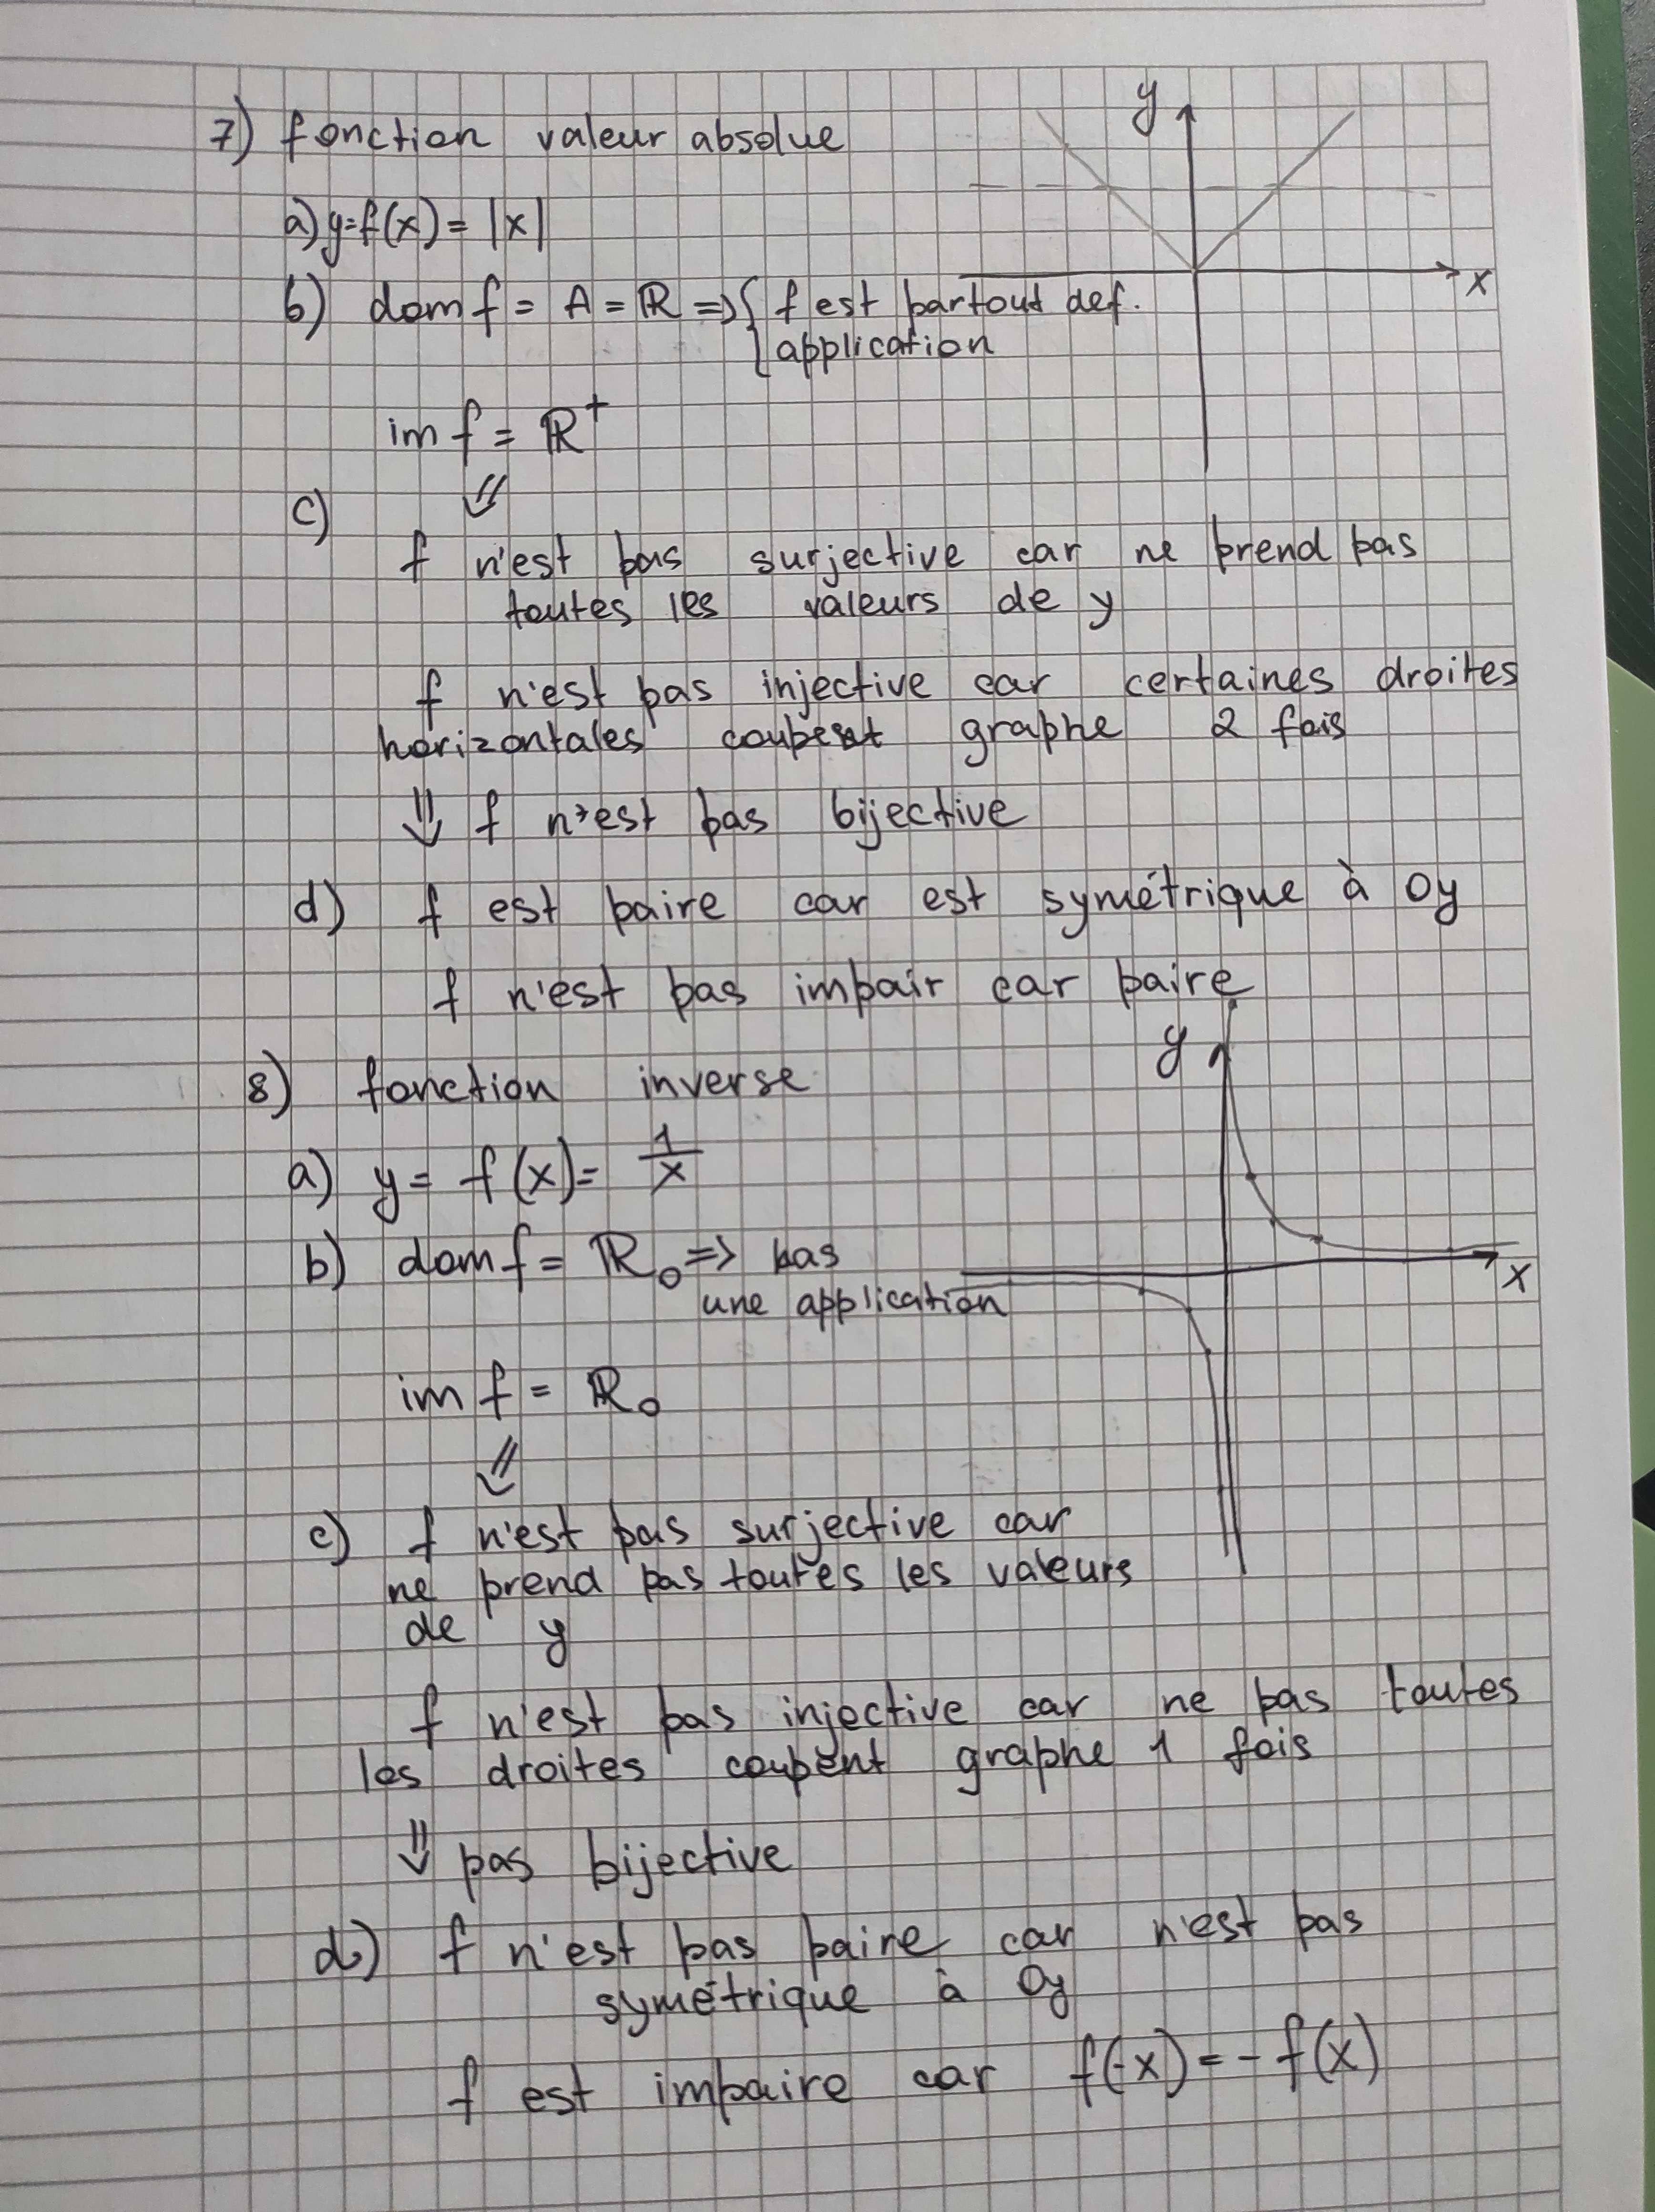 7) fonction valeur absolue
y
a) y=f(x) = |x|
x
b) dom f = A = ℝ => { f est partout def.
application
im f = ℝ⁺
⇓
c)
f n'est pas surjective car ne prend pas
toutes les valeurs de y
f n'est pas injective car certaines droites
horizontales coupent graphe 2 fois
⇓ f n'est pas bijective
d) f est paire car est symétrique à Oy
f n'est pas impair car paire
y
8) fonction inverse
a) y = f(x) = 1/x
b) dom f = ℝ₀ => pas
x
une application
im f = ℝ₀
⇓
c) f n'est pas surjective car
ne prend pas toutes les valeurs
de y
f n'est pas injective car ne pas toutes
les droites coupent graphe 1 fois
⇓ pas bijective
d) f n'est pas paire car n'est pas
symétrique à Oy
f est impaire car f(-x) = - f(x)